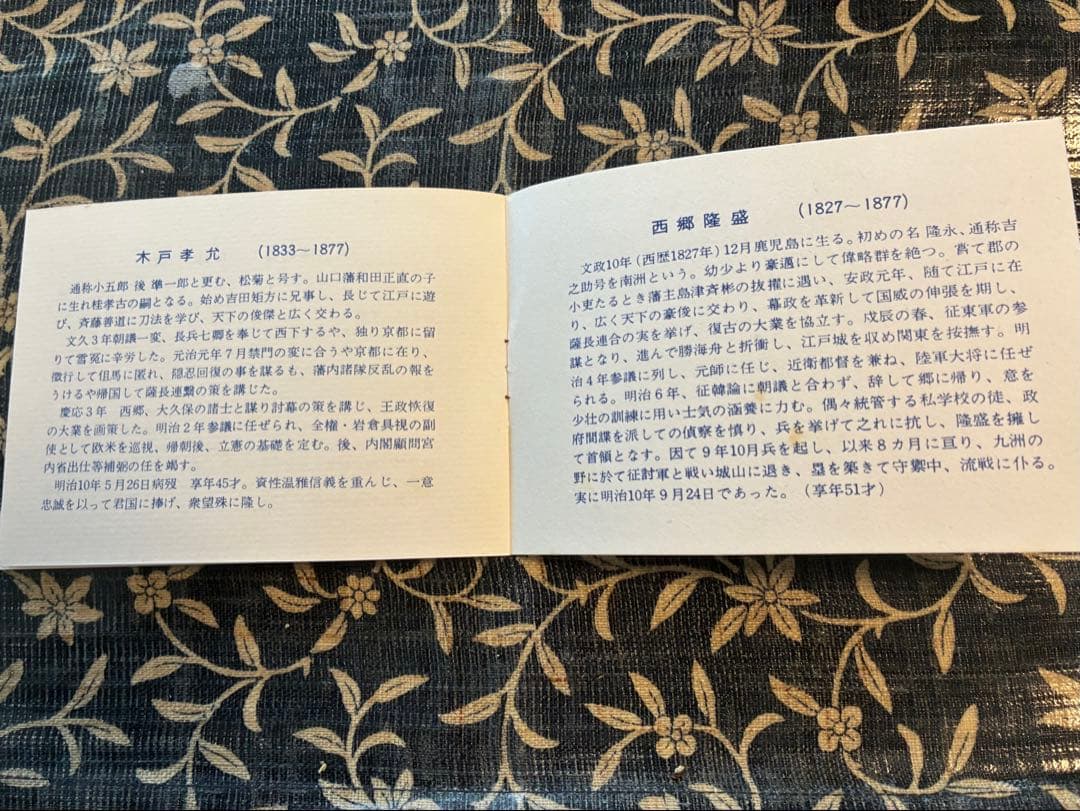 木戸孝允 (1833〜1877)
通称小五郎 後 準一郎と更む、松菊と号す。山口藩和田正直の子
に生れ桂孝古の嗣となる。始め吉田矩方に兄事し、長じて江戸に遊
び、斉藤善道に刀法を学び、天下の俊傑と広く交わる。
文久3年朝議一変、長兵七卿を奉じて西下するや、独り京都に留
りて雪冤に辛労した。元治元年7月禁門の変に合うや京都に在り、
微行して但馬に匿れ、隠忍回復の事を謀るも、藩内諸隊反乱の報を
うけるや帰国して薩長連繫の策を講じた。
慶応3年 西郷、大久保の諸士と謀り討幕の策を講じ、王政恢復
の大業を画策した。明治2年参議に任ぜられ、全権・岩倉具視の副
使として欧米を巡視、帰朝後、立憲の基礎を定む。後、内閣顧問宮
内省出仕等補弼の任を竭す。
明治10年5月26日病歿 享年45才。資性温雅信義を重んじ、一意
忠誠を以って君国に捧げ、衆望殊に隆し。
西郷隆盛 (1827〜1877)
文政10年(西歴1827年)12月鹿児島に生る。初めの名 隆永、通称吉
之助号を南洲という。幼少より豪邁にして偉略群を絶つ。嘗て郡の
小吏たるとき藩主島津斉彬の抜擢に遇い、安政元年、随て江戸に在
り、広く天下の豪俊に交わり、幕政を革新して国威の伸張を期し、
薩長連合の実を挙げ、復古の大業を協立す。戊辰の春、征東軍の参
謀となり、進んで勝海舟と折衝し、江戸城を収め関東を按撫す。明
治4年参議に列し、元師に任じ、近衛都督を兼ね、陸軍大将に任ぜ
られる。明治6年、征韓論に朝議と合わず、辞して郷に帰り、意を
少壮の訓練に用い士気の涵養に力む。偶々統管する私学校の徒、政
府間諜を派しての偵察を憤り、兵を挙げて之れに抗し、隆盛を擁し
て首領となす。因て9年10月兵を起し、以来8カ月に亘り、九洲の
野に於て征討軍と戦い城山に退き、塁を築きて守禦中、流戦に仆る。
実に明治10年9月24日であった。(享年51才)